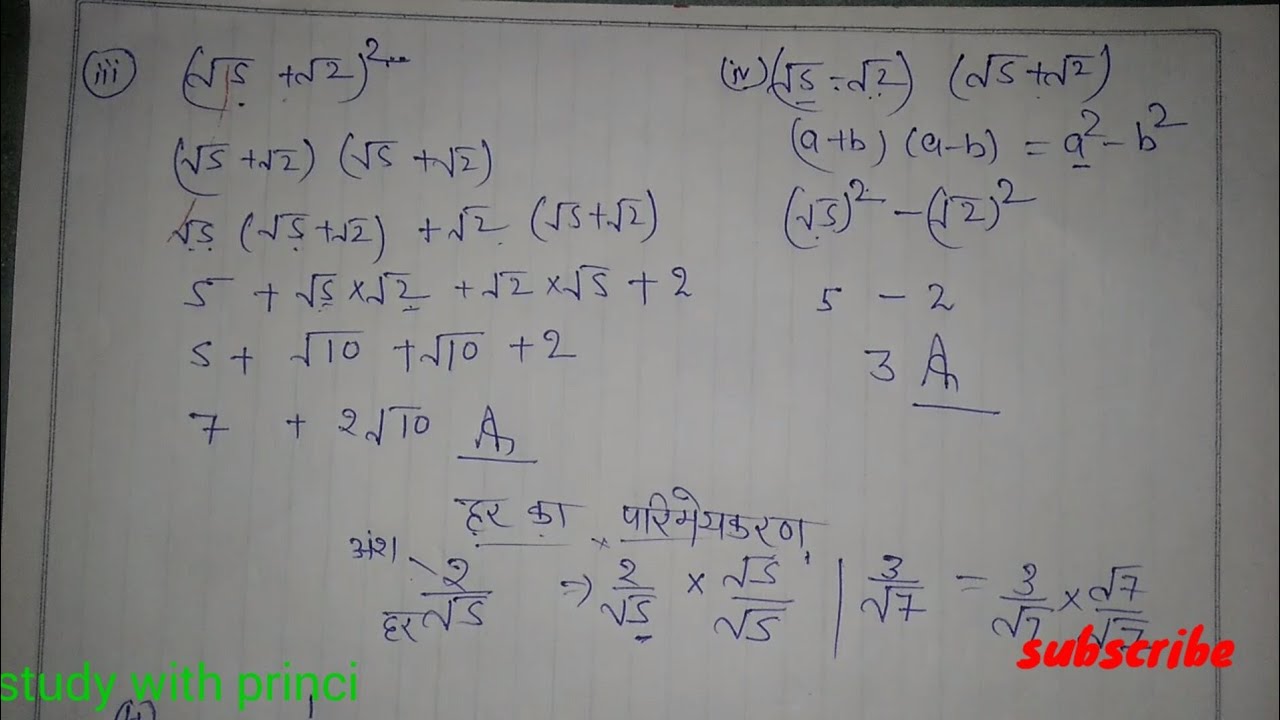 (iii) (√5 + √2)²
(√5 + √2) (√5 + √2)
√5 (√5 + √2) + √2 (√5 + √2)
5 + √5 × √2 + √2 × √5 + 2
5 + √10 + √10 + 2
7 + 2√10 A
(iv) (√5 - √2) (√5 + √2)
(a+b) (a-b) = a² - b²
(√5)² - (√2)²
5 - 2
3 A
हर का परिमेयकरण
अंश 2 / हर √5 ⇒ 2/√5 × √5/√5 | 3/√7 = 3/√7 × √7/√7
subscribe
study with princi